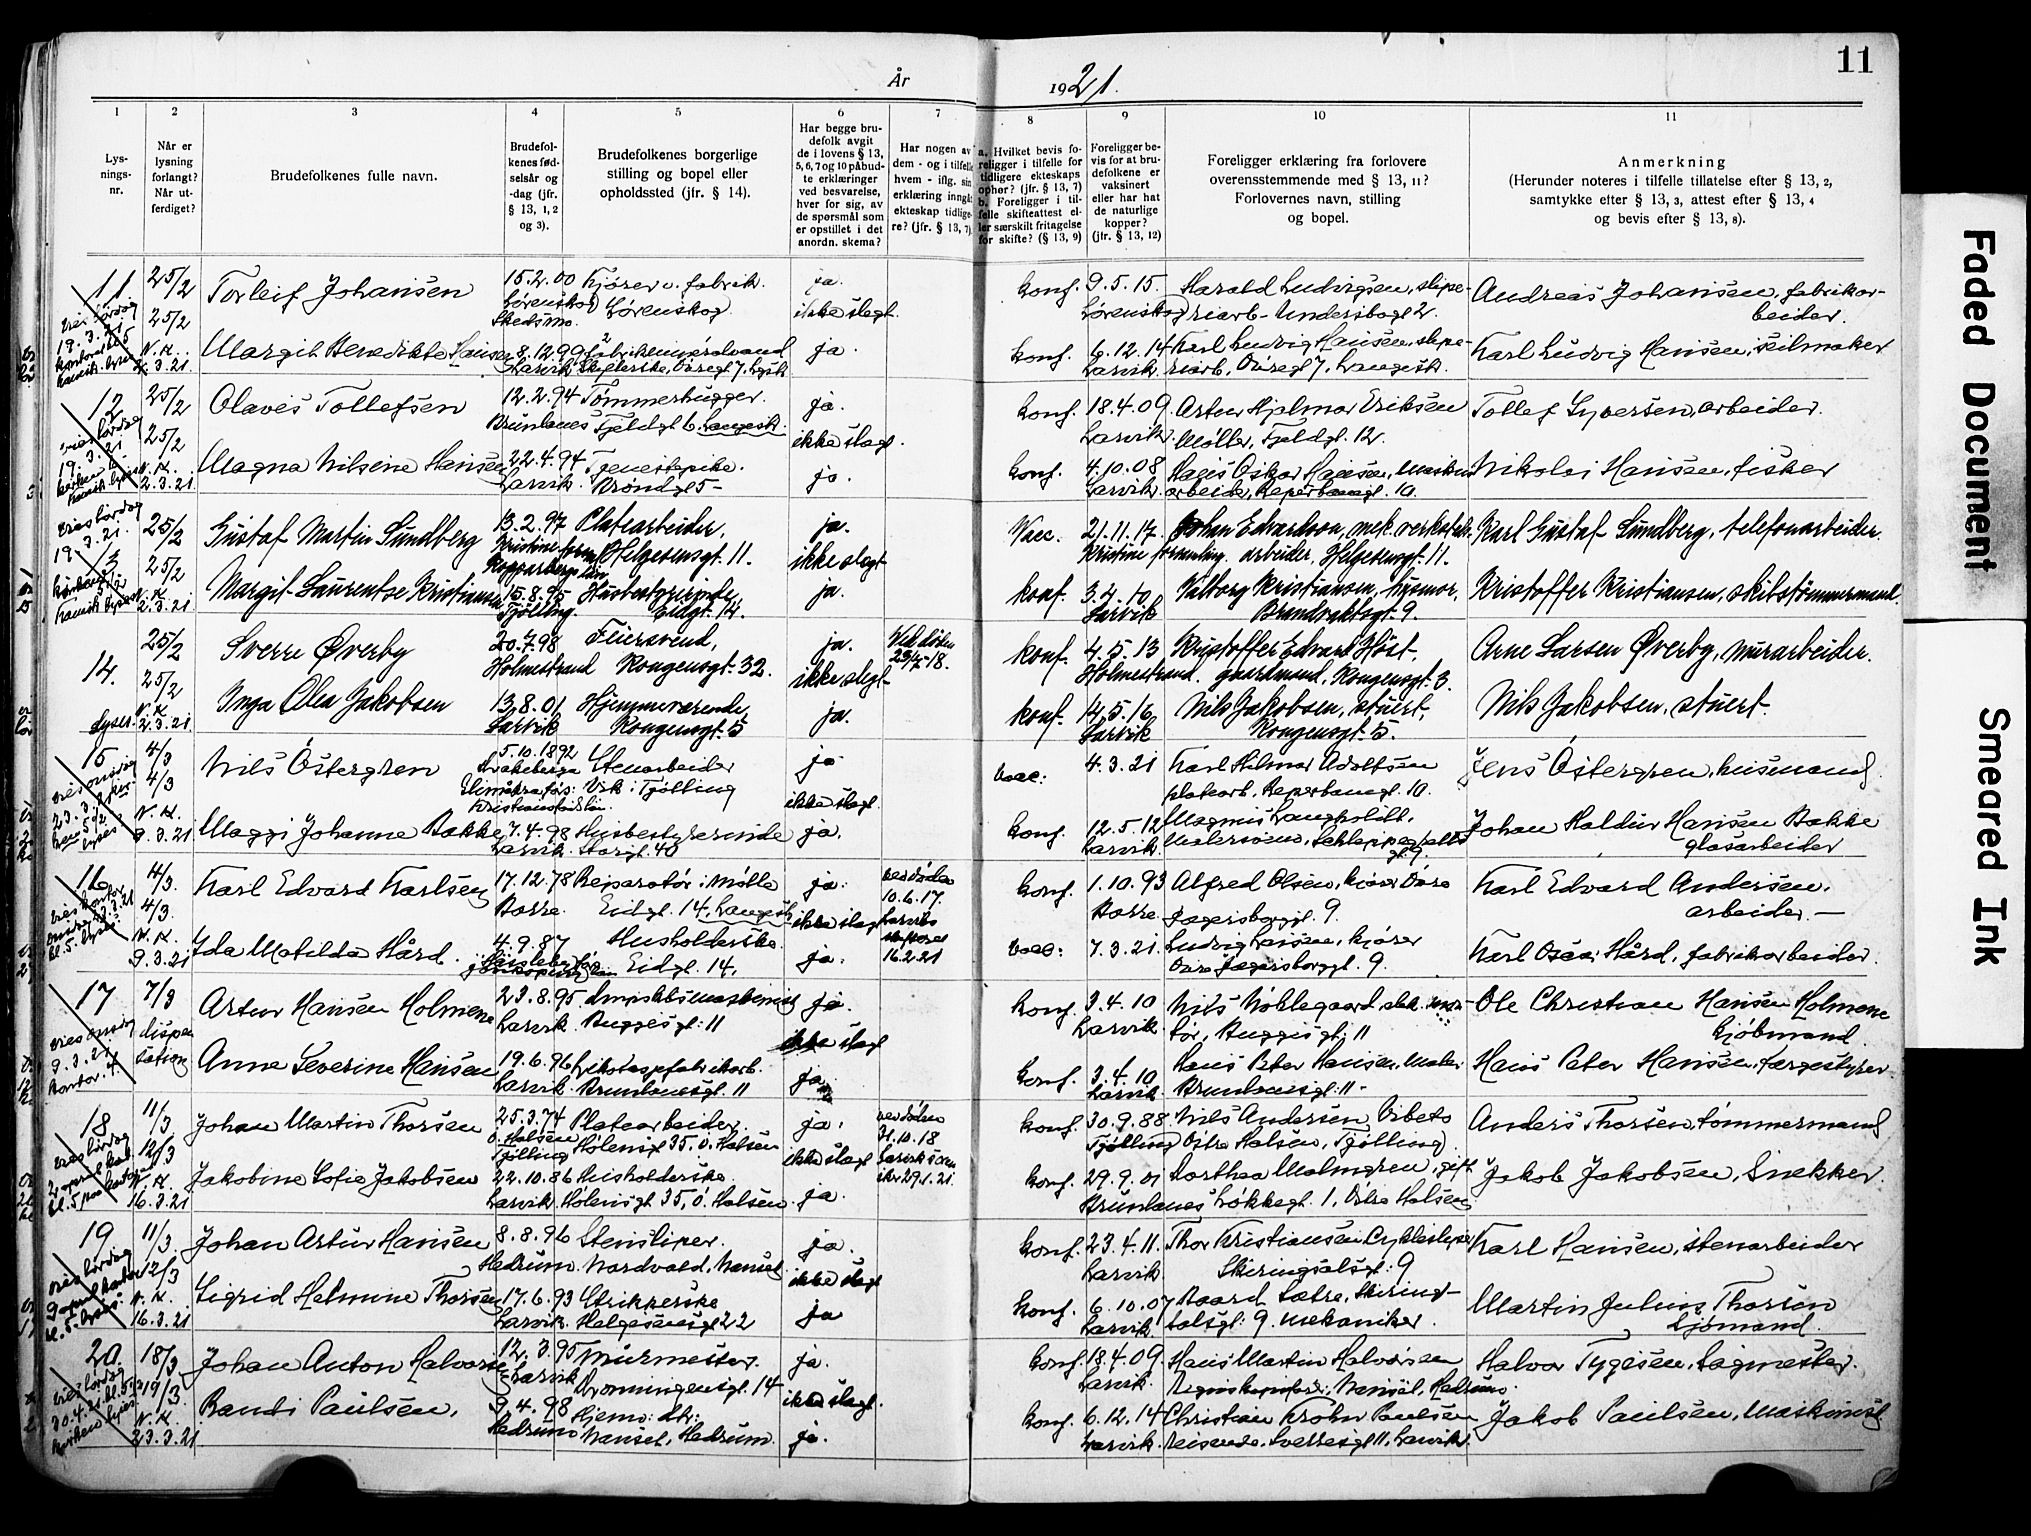 11
År
1921.
1
2
3
4
5
6
7
8
9
10
11
Lys-
nings-
nr.
Når er
lysning
forlangt?
Når ut-
ferdiget?
Brudefolkenes fulle navn.
Brudefol-
kenes fød-
selsår og
-dag (jfr.
§ 13, 1, 2
og 3).
Brudefolkenes borgerlige
stilling og bopel eller
opholdssted (jfr. § 14).
Har begge bru-
defolk avgit
de i lovens § 13,
5, 6, 7 og 10 påbud-
te erklæringer
ved besvarelse,
hver for sig, av
de spørsmål som
er opstillet i det
anordn. skema?
Har nogen av
dem - og i tilfelle
hvem - iflg. sin
erklæring inngåt
ekteskap tidlige-
re? (jfr. § 13, 7)
a. Hvilket bevis fo-
religger i tilfelle for
tidligere ekteskaps
ophør? (jfr. § 13, 7)
b. Foreligger i til-
felle skifteattest el-
ler særskilt fritagelse
for skifte? (§ 13, 9)
Foreligger be-
vis for at bru-
defolkene er
vaksinert
eller har hat
de naturlige
kopper?
(jfr. § 13, 12)
Foreligger erklæring fra forlovere
overensstemmende med § 13, 11?
Forlovernes navn, stilling
og bopel.
Anmerkning
(Herunder noteres i tilfelle tillatelse efter § 13, 2,
samtykke efter § 13, 3, attest efter § 13, 4
og bevis efter § 13, 8).
11
25/2
Torleif Johansen
15.2.00
Kjører v. fabrik.
ja.
konf.
9.5.15.
Harald Ludvigsen, slipe-
Andreas Johansen, fabrikar-
19.3.21
25/2
Lørenskog
Skedsmo.
Lørenskog
ikke slegt.
Lørenskog
riarb -
beider.
N.K.
2.3.21
Margit Benedikte Hansen
8.12.99
Larvik
ja.
konf.
6.12.14
Larvik.
Karl Ludvig Hansen, slipe-
riarb, Øvregt 7, Langesk.
Karl Ludvig Hansen, seilmaker
12
25/2
Olaves Tollefsen
12.2.94
Tømmerhugger.
ja.
konf.
18.4.09.
Artur Hjalmar Eriksen
Tollef Syversen, arbeider.
19.3.21
25/2
Brunlanes
Fjeldgt 6. Langesk.
ikke slegt.
Larvik.
Møller, Fjeldgt. 12.
N.K.
2.3.21
Magna Nilsine Hansen
22.4.94
Larvik.
Tjenestepike.
Brøndgt 5 -
ja.
konf.
4.10.08
Larvik.
Hagis Oskar Hansen, Maskin
arbeider, Reperbanegt. 10.
Nikolai Hansen, fisker
Vies lørdag
19.3.21.
13
25/2
Gustaf Martin Sundberg
13.2.97
Platearbeider,
ja.
Vacc.
21.11.17
Johan Edvardson, mek. verksteds-
Karl Gustaf Sundberg, telefonarbeider.
25/2
Kristine forsml.
Kopparbergs län
Helgesensgt. 11.
ikke slegt
Kristine forsamling.
arbeider, Helgesensgt. 11.
N.K.
2.3.21
Margit Laurentse Kristiansen
15.8.95
Tjølling.
Husbestyrerinde,
Eidgt. 14.
ja.
konf.
3.4.10
Larvik
Valborg Kristiansen, husmor,
Brandvaktsgt. 9.
Kristoffer Kristiansen, skibstømmermand.
14.
25/2
Sverre Øverby
20.7.98
Feiersvend,
ja.
Ved døden
23/7-18.
konf.
4.5.13
Kristoffer Edvard Høst,
Arne Larsen Øverby, murarbeider.
25/2
Holmestrand
Kongensgt. 32.
ikke slegt
Holmestrand.
gaardmand, Kongensgt. 3.
Lyser.
N.K.
2.3.21
Inga Olea Jakobsen
13.8.01
Larvik
Hjemmeværende,
Kongensgt. 5
ja.
konf.
14.5.16.
Larvik
Nils Jakobsen, stuert,
Kongensgt. 5.
Nils Jakobsen, stuert.
15
4/3
Nils Östergren
5.10.1892
Stenarbeider
ja
vacc:
4.3.21
Karl Hilmar Adolfsen
Jens Östergren, husmand
vies onsdag
23.3.21
4/3
Vik i Tjølling
ikke slegt.
platearb. Reperbanegt. 10.
N.K.
9.3.21
Maggi Johanne Bakke
7.4.98
Larvik.
Husbestyrerinde
Storgt. 40
ja.
konf.
12.5.12
Larvik
Magnus Langholdt,
Johan Haldur Hansen Bakke
glasarbeider
16
4/3.
Karl Edvard Karlsen
17.12.78
Reparatør i Mølle
ja.
ved døden
10.6.17.
konf.
1.10.93
Alfred Olsen, kjører Øvre
Karl Edvard Andersen,
4/3.
Borre.
Eidgt. 14, Langesk
ikke slegt
Larviks
skifteret
16.2.21
Borre
Jægersborggt. 9.
arbeider. -
N.K.
9.3.21
Ida Matilda Hård.
4.9.87
Husholderske.
Eidgt. 14.
ja.
vacc:
7.3.21.
Ludvig Larsen, kjører
Øvre Jægersborggt. 9.
Karl Oscar Hård, fabrikarbeider.
17
7/3
Artur Hansen Holmene
23.8.95
Larvik.
Dampskibsmaskinist
Buggesgt: 11
ja.
konf.
3.4.10
Larvik.
Nils Nøklegaard elek. mon-
tør, Buggesgt. 11
Ole Christian Hansen Holmene
kjøbmand.
vies onsdag
9.3.21
kontor. 4.
dispen
sation
ikke slegt
Anne Severine Hansen
19.6.96
Larvik.
Trikotagefabrikarb.
Brunlanesgt. 11
ja
konf.
3.4.10
Larvik
Hans Peter Hansen, Maler
Brunlanesgt. 11 -
Hans Peter Hansen, færgestyrer
18
11/3
Johan Martin Thorsen
25.3.74
Ø. Halsen
Tjølling
Platearbeider.
Hølensgt 35. Ø. Halsen
ja.
ved døden
31.10.18
konf.
30.9.88
Tjølling
Nils Andersen Vibeto
Østre Halsen, Tjølling
Anders Thorsen, tømmermand
12/3
N.K.
16.3.21
Jakobine Sofie Jakobsen
22.10.86
Larvik.
Husholderske.
Hølensgt. 35, Ø. Halsen
ikke slegt
ja.
konf.
29.9.01
Brunlanes
Dorthea Malmgren, gift.
Løkkegt. 1, Østre Halsen
Jakob Jakobsen, Snekker.
19
11/3.
Johan Artur Hansen
8.8.96
Hedrum.
Stensliper.
Nordvald, Nanset
ja.
konf.
23.4.11.
Larvik.
Thor Kristiansen Cyklesliper
Skiringsalsgt: 9
Karl Hansen, stenarbeider
12/3
N.K.
16.3.21
Sigrid Helmine Thorsen
17.6.93
Larvik.
Strikkerske
Helgesensgt 22
ikke slegt
ja
konf.
6.10.07
Larvik.
Baard Sætre, Skiring-
salsgt: 9. mekaniker.
Martin Julius Thorsen
Sjømand.
20.
18/3
Johan Anton Halvorsen
12.3.95
Larvik
Murmester.
Dronningensgt. 14
ja.
konf.
18.4.09.
Larvik.
Hans Martin Halvorsen
Nanset, Hedrum.
Halvor Tygesen, Sagmester.
19/3.
N.K.
23.3.21
Randi Paulsen.
9.4.98
Hedrum
Hjemv. dtr:
Nanset, Hedrum.
ikke slegt.
ja.
konf.
6.12.14
Larvik.
Christian Krohn Paulsen
reisende, Sverresgt 11, Larvik.
Jakob Paulsen, Maskinist
Faded Document
Smeared Ink